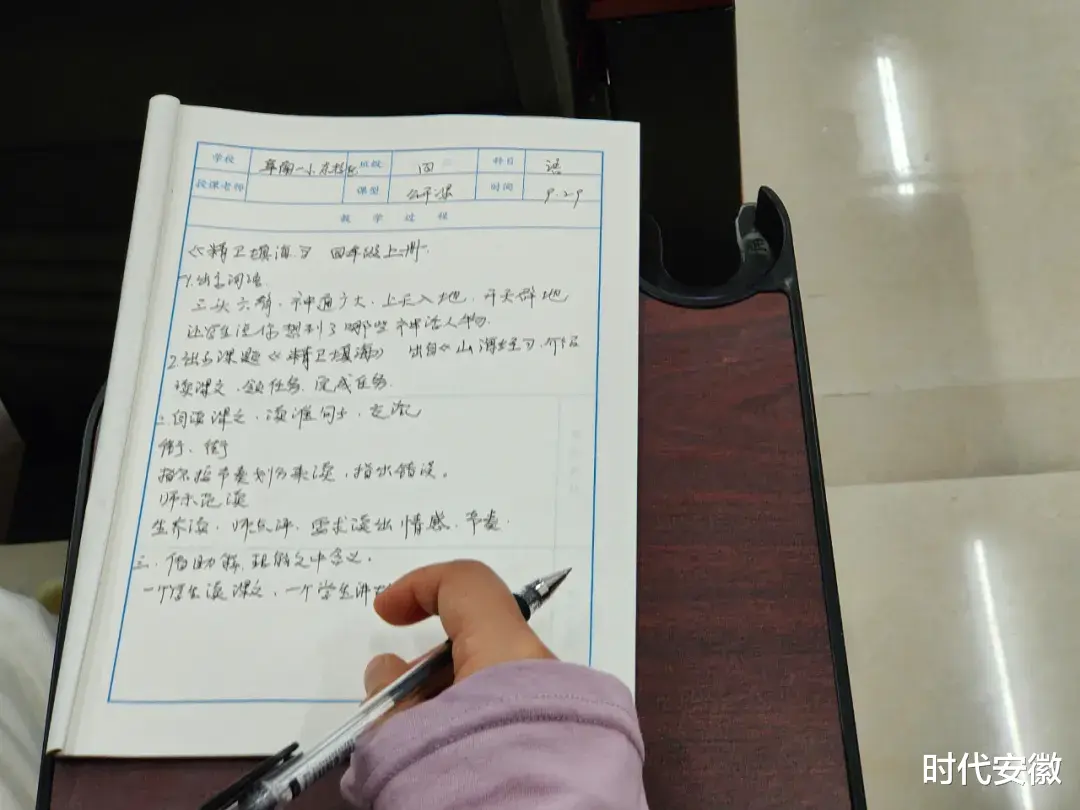 学校 阜南一小东校区 班级 四 科目 语
授课老师 课型 公开课 时间 9.29
教学过程
《精卫填海》 四年级上册
1.出示词语
三头六臂、神通广大、上天入地、开天辟地
让学生说你想到了哪些神话人物.
2.出示课题《精卫填海》 出自《山海经》介绍
读课文、领任务、完成任务.
二.自读课文、读准句子、交流
衔、衔
指名按节奏划分来读,指出错误。
师示范读
生齐读、师点评、要求读出情感、节奏.
三.借助注解,理解文中含义。
一个学生读课文、一个学生讲
时代安徽